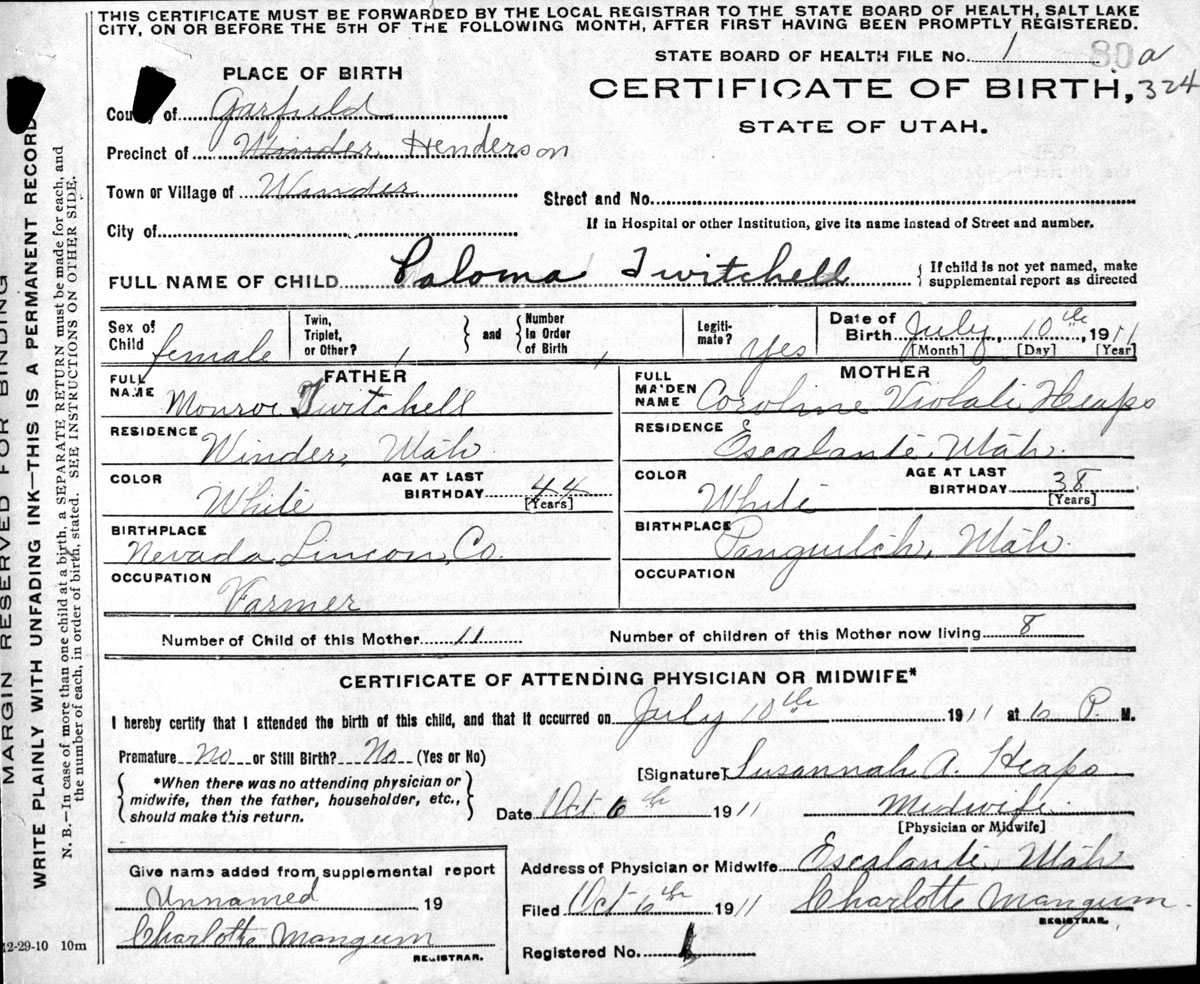 THIS CERTIFICATE MUST BE FORWARDED BY THE LOCAL REGISTRAR TO THE STATE BOARD OF HEALTH, SALT LAKE
CITY, ON OR BEFORE THE 5TH OF THE FOLLOWING MONTH, AFTER FIRST HAVING BEEN PROMPTLY REGISTERED.
STATE BOARD OF HEALTH FILE No. 1 80 a
324
PLACE OF BIRTH
CERTIFICATE OF BIRTH,
STATE OF UTAH.
County of Garfield
Precinct of Winder Henderson
Town or Village of Winder
Street and No.
City of
If in Hospital or other Institution, give its name instead of Street and number.
FULL NAME OF CHILD Paloma Twitchell
If child is not yet named, make
supplemental report as directed
Sex of Child female
Twin, Triplet, or Other? and Number In Order of Birth
Legitimate? Yes
Date of Birth July 10th, 1911
[Month] [Day] [Year]
FATHER
FULL NAME Monroe Twitchell
RESIDENCE Winder, Utah
COLOR White AGE AT LAST BIRTHDAY 44 [Years]
BIRTHPLACE Nevada Lincon, Co.
OCCUPATION Varmer
MOTHER
FULL MAIDEN NAME Coroline Violati Heaps
RESIDENCE Escalante, Utah
COLOR White AGE AT LAST BIRTHDAY 38 [Years]
BIRTHPLACE Panguitch, Utah
OCCUPATION
Number of Child of this Mother 11 Number of children of this Mother now living 8
CERTIFICATE OF ATTENDING PHYSICIAN OR MIDWIFE*
I hereby certify that I attended the birth of this child, and that it occurred on July 10th 1911 at 6 P. M.
Premature No or Still Birth? No (Yes or No)
[Signature] Susannah A. Heaps
*When there was no attending physician or
midwife, then the father, householder, etc.,
should make this return.
Date Oct. 6th 1911
Midwife
[Physician or Midwife]
Give name added from supplemental report
Unnamed 19
Charlotte Mangum
REGISTRAR.
Address of Physician or Midwife Escalante, Utah
Filed Oct 6th 1911 Charlotte Mangum.
REGISTRAR.
Registered No. 1
12-29-10 10m
MARGIN RESERVED FOR BINDING
WRITE PLAINLY WITH UNFADING INK—THIS IS A PERMANENT RECORD
N. B.—In case of more than one child at a birth, a SEPARATE RETURN must be made for each, and
the number of each, in order of birth, stated. SEE INSTRUCTIONS ON OTHER SIDE.